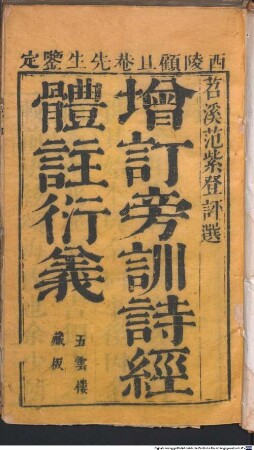 西陵顧且菴先生鑒定
苕溪范紫登評選
增訂旁訓詩經
體註衍義
五雲樓
藏板